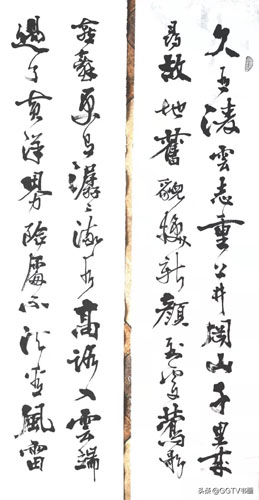 久有淩雲志重上井岡山千里來
尋故地舊貌換新顏到處鶯歌
燕舞更有潺潺流水高路入雲端
過了黄洋界險處不須看風雷
头条 @CGTV书画